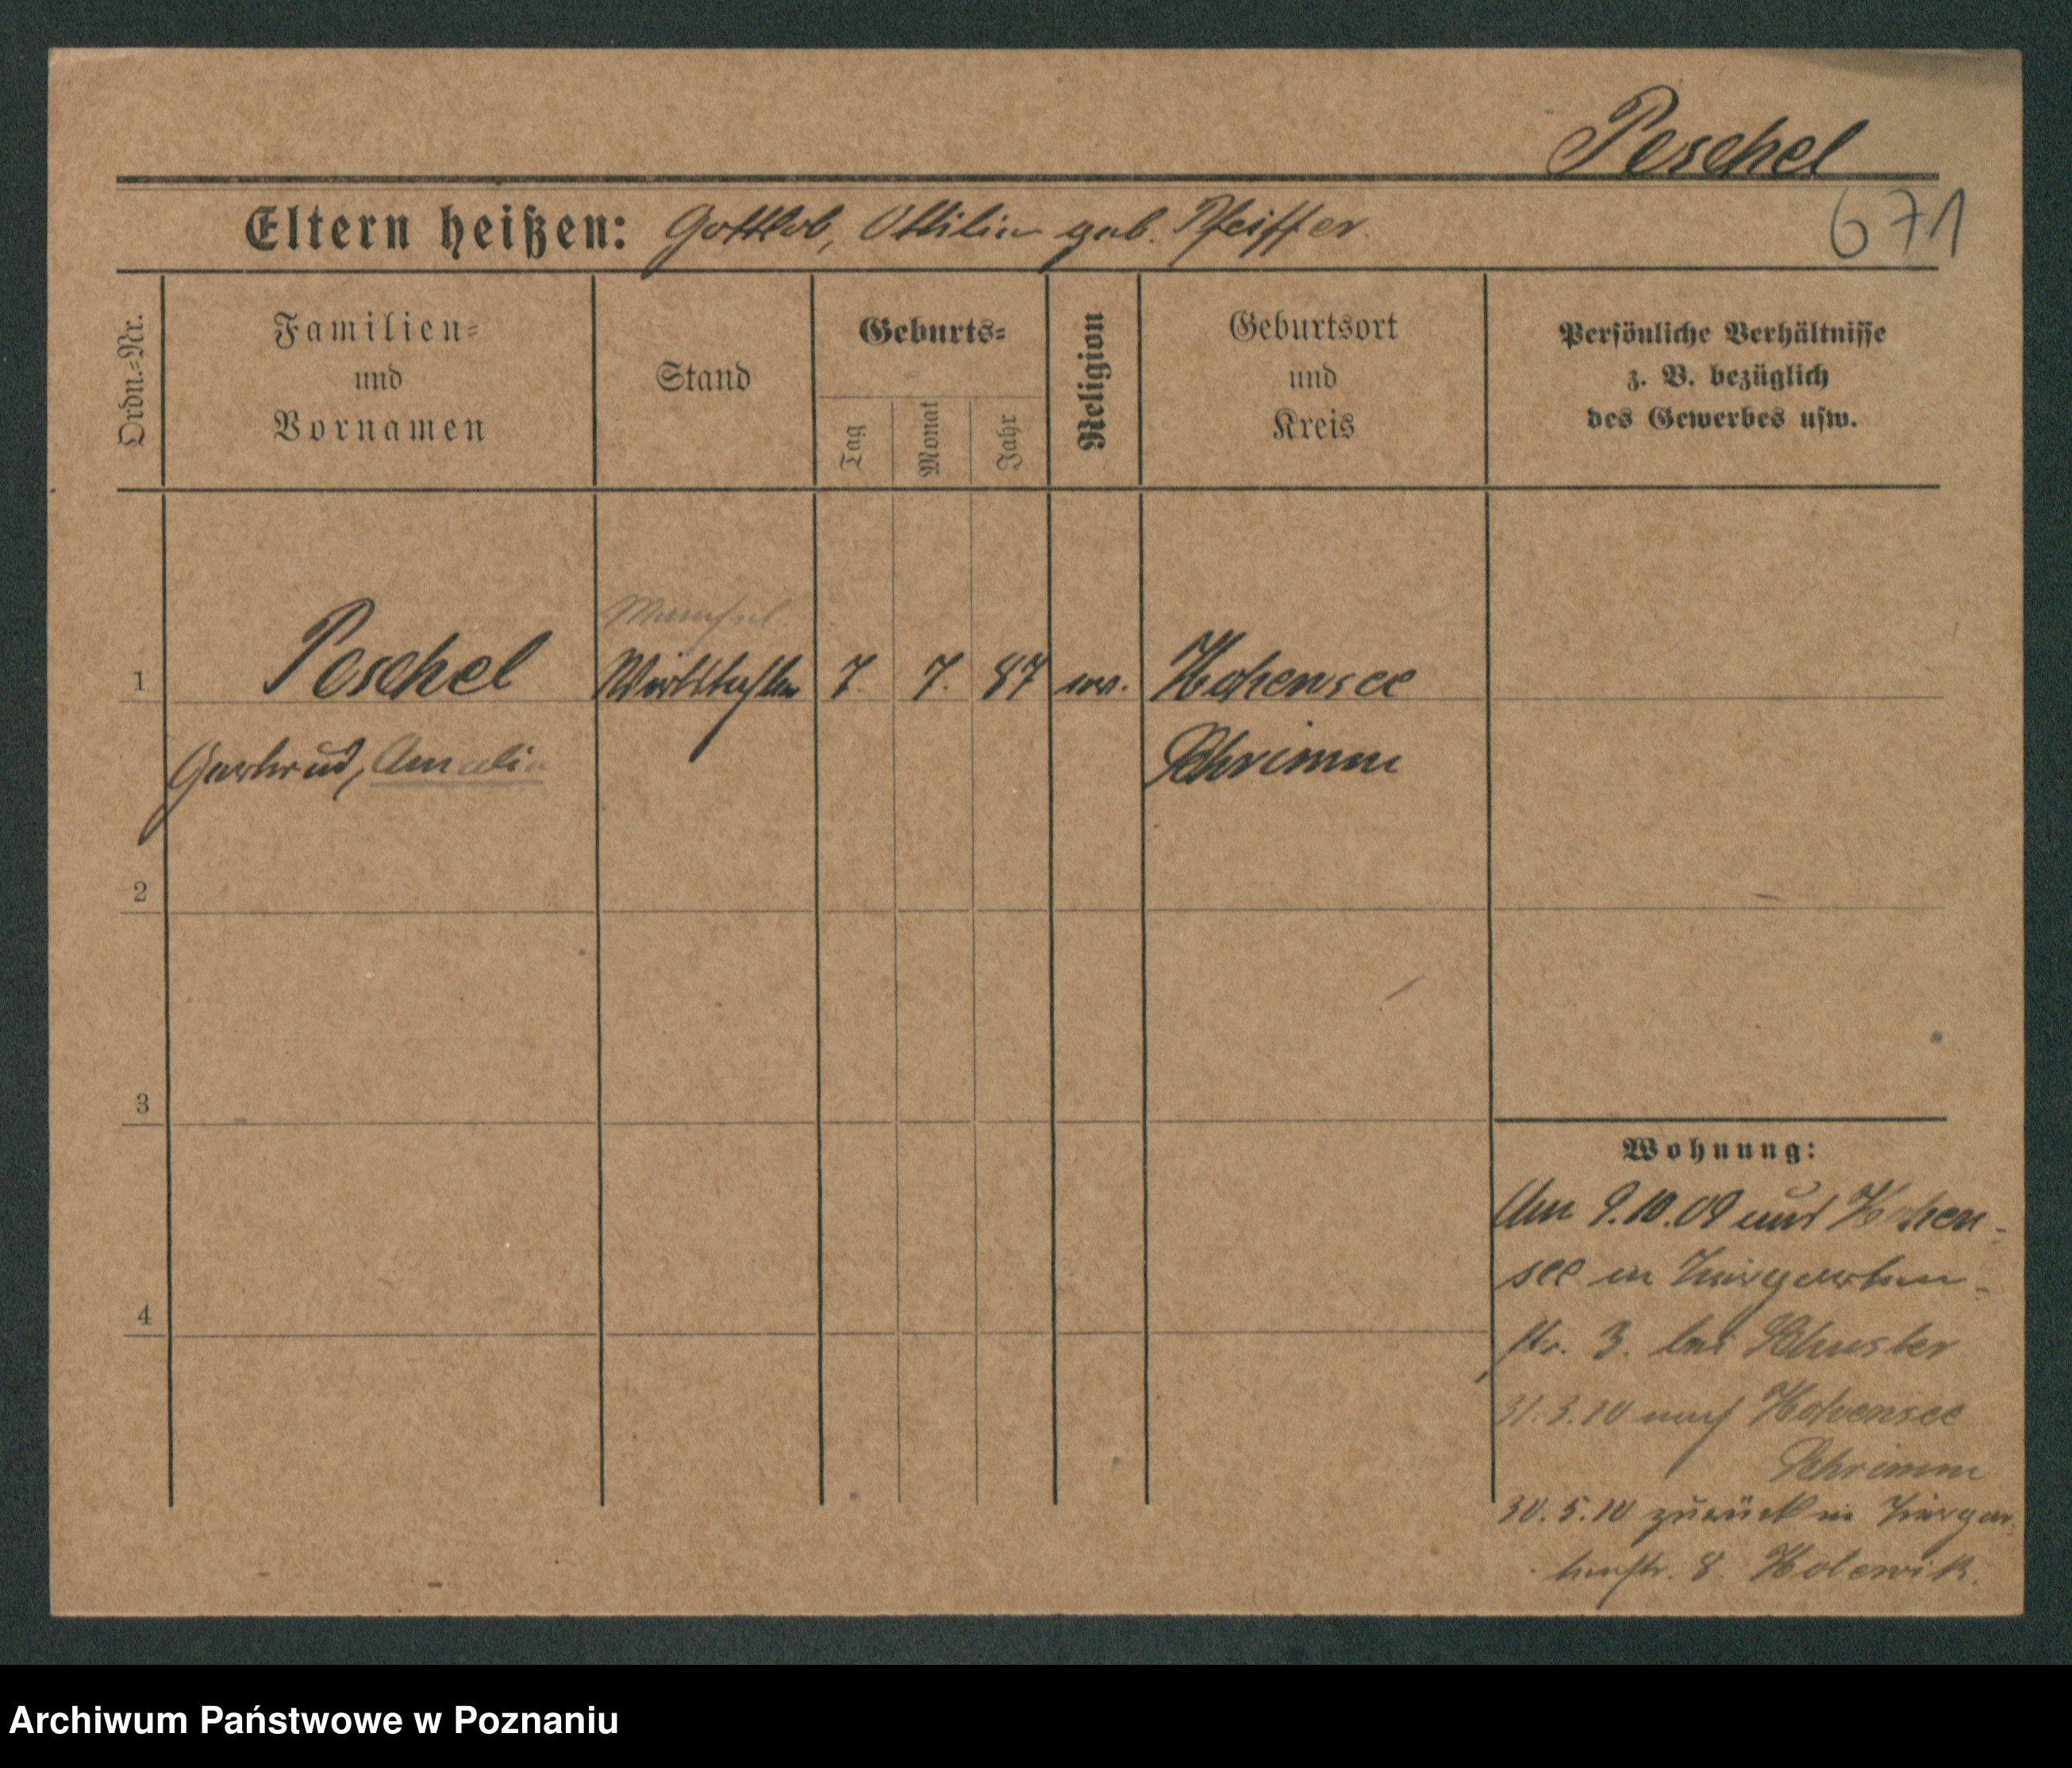 Peschel
671
Eltern heißen: Gottlob, Ottilie geb. Pfeiffer.
Ordn.=Nr.
Familien=
und
Vornamen
Stand
Geburts=
Tag
Monat
Jahr
Religion
Geburtsort
und
Kreis
Persönliche Verhältnisse
z. B. bezüglich
des Gewerbes usw.
Mamsel
1 Peschel 7. 7. 87 ev. Hohensee
Gertrud, Amalie Schrimm
2
3
4
Wohnung:
Am 9.10.09 aus Hohen-
see in Tiergarten-
str. 3. bei Schuster
31.3.10 nach Hohensee
Schrimm
30.5.10 zurück in Tiergar-
tenstr. 8.
Archiwum Państwowe w Poznaniu